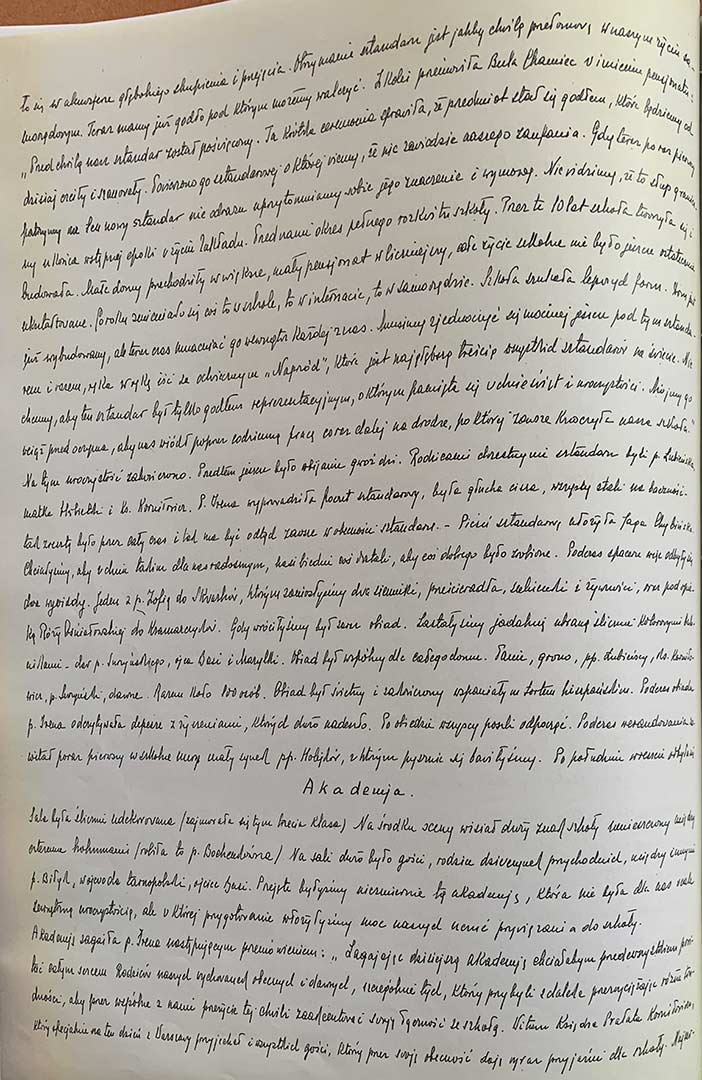 to się w atmosferze głębokiego skupienia i przejęcia. Otrzymanie sztandaru jest jakby chwilą przełomową w naszym życiu sa-
morządowym. Teraz mamy już godło pod którym możemy walczyć. Z kolei przemówiła Beata Chamiec w imieniu pensjonatu:
"Przed chwilą nasz sztandar został poświęcony. Ta krótka ceremonia sprawiła, że przedmiot stał się godłem, które będziemy od
dzisiaj czciły i szanowały. Powierzono go sztandarowej o której wiemy, że nie zawiedzie naszego zaufania. Gdy teraz po raz pierwszy
patrzymy na ten nowy sztandar nie odrazu uprzytomniamy sobie jego znaczenie i wymowę. Nie widzimy, że to słup graniczny
u końca wstępnej epoki w życiu Zakładu. Przed nami okres pełnego rozkwitu szkoły. Przez te 10 lat szkoła tworzyła się i
budowała. Małe domy przechodziły w większe, mały pensjonat w liczniejszy, całe życie szkolne nie było jeszcze ostatecznie
ukształtowane. Co roku zmieniało się coś to w szkole, to w internacie, to w samorządzie. Szkoła szukała lepszych form. Dom jest
już wybudowany, ale teraz czas umacniać go wewnątrz każdej z nas. Musimy zjednoczyć się mocniej jeszcze pod tym sztanda-
rem i razem, ręka w rękę iść za odwiecznym "Naprzód", które jest najgłębszą treścią wszystkich sztandarów na świecie. Nie
chcemy, aby ten sztandar był tylko godłem reprezentacyjnym, o którym pamięta się w dnie świąt i uroczystości. Miejmy go
wciąż przed oczyma, aby nas wiódł poprzez codzienną pracę coraz dalej na drodze, po której zawsze kroczyła nasza szkoła."
Na tym uroczystość zakończono. Przedtem jeszcze było wbijanie gwoździ. Rodzicami chrzestnymi sztandaru byli p. Łubieńska
matka i ks. Korniłowicz. P. Irena wyprowadziła poczet sztandarowy, była głucha cisza, wszyscy stali na baczność.
tak zresztą było przez cały czas i tak ma być odtąd zawsze w obecności sztandaru. - Pieśń sztandarową ułożyła Jaga Chybińska.
Chciałyśmy, aby w dniu takim dla nas radosnym, nasi biedni coś dostali, aby coś dobrego było zrobione. Podczas spaceru więc odbyły się
dwa wyjazdy. Jeden z p. Zofią do Skwarków, którym zawiozłyśmy dwa sienniki, prześcieradła, sukienki i żywność, oraz pod opie-
ką Róży Działowskiej do Kramarczyków. Gdy wróciłyśmy był zaraz obiad. Zastałyśmy jadalnię ubraną ślicznie kolorowymi
- dar p. Surzyńskiego, ojca Basi i Marylki. Obiad był wspólny dla całego domu. Panie, grono, pp. Łubieńscy, ks. Korniło-
wicz, p. Surzyński, dawne. Razem koło 100 osób. Obiad był świetny i zakończony wspaniałym tortem hiszpańskim. Podczas obiadu
p. Irena odczytywała depesze z życzeniami, których dużo nadeszło. Po obiedzie wszyscy poszli odpocząć. Podczas werandowania
witał poraz pierwszy w szkolne mury mały synek pp. , z którym pysznie się bawiłyśmy. Po południu wreszcie odbyła się
Akademja.
Sala była ślicznie udekorowana /zajmowała się tym trzecia klasa/ Na środku sceny wisiał duży znak szkoły umieszczony między
czterema kolumnami /robiła to p. / Na sali dużo było gości, rodzice dziewczynek przychodnich, między innymi
p. Biłyk, wojewoda tarnopolski, ojciec Zuzi. Przejęte byłyśmy niezmiernie tą akademją, która nie była dla nas wcale
zewnętrzną uroczystością, ale w której przygotowanie włożyłyśmy moc naszych uczuć przywiązania do szkoły.
Akademję zagaiła p. Irena następującym przemówieniem: "Zagajając dzisiejszą akademję chciałabym przedewszystkiem powi-
tać całym sercem Rodziców naszych wychowanek obecnych i dawnych, szczególnie tych, którzy przybyli z daleka przezwyciężając różne tru-
dności, aby przez wspólne z nami przeżycie tej chwili zaakcentować swoją łączność ze szkołą. Witam Księdza Prałata Korniłowicza,
który specjalnie na ten dzień z Warszawy przyjechał i wszystkich gości, którzy przez swoją obecność dają wyraz przyjaźni dla szkoły.